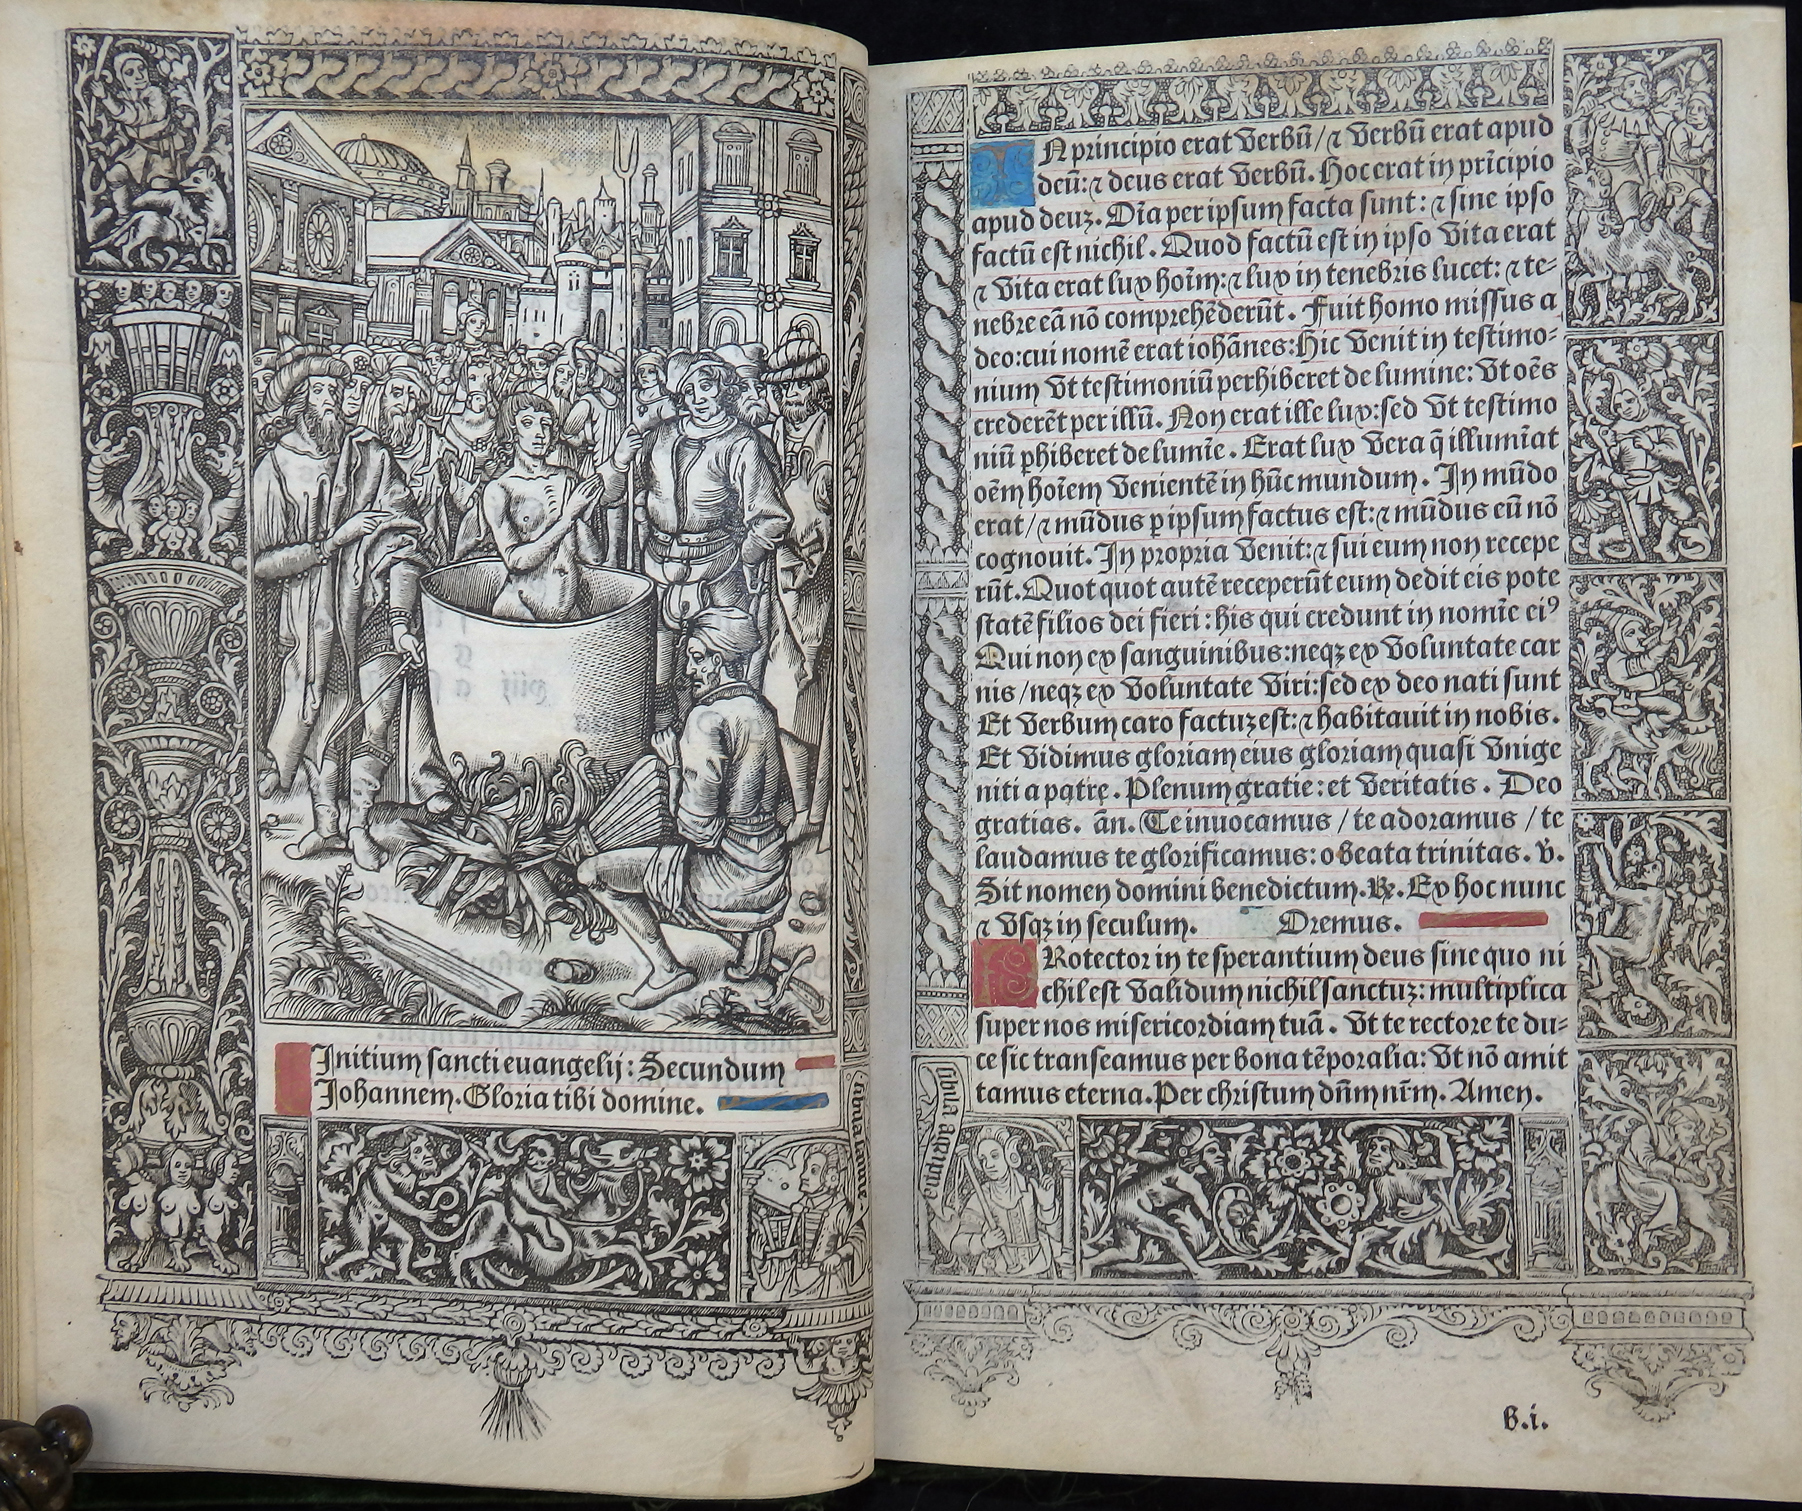 Initium sancti euangelij: Secundum
Johannem. Gloria tibi domine.
sibila
N principio erat verbū / ⁊ verbū erat apud
deū: ⁊ deus erat verbū. Hoc erat in prīcipio
apud deuꝫ. Oīa per ipsum facta sunt: ⁊ sine ipso
factū est nichil. Quod factū est in ipso vita erat
⁊ vita erat lux hoīm: ⁊ lux in tenebris lucet: ⁊ te-
nebre eā nō comprehēderūt. Fuit homo missus a
deo: cui nomē erat iohānes: Hic venit in testimo-
nium vt testimoniū perhiberet de lumine: vt oēs
crederēt per illū. Non erat ille lux: sed vt testimo
niū ꝑhiberet de lumīe. Erat lux vera q̄ illumīat
oēm hoīem venientē in hūc mundum. In mūdo
erat / ⁊ mūdus ꝑ ipsum factus est: ⁊ mūdus eū nō
cognouit. In propria venit: ⁊ sui eum non recepe
rūt. Quot quot autē receperūt eum dedit eis pote
statē filios dei fieri: his qui credunt in nomīe eiꝰ
Qui non ex sanguinibus: neqꝫ ex voluntate car
nis / neqꝫ ex voluntate viri: sed ex deo nati sunt
Et verbum caro factuꝫ est: ⁊ habitauit in nobis.
Et vidimus gloriam eius gloriam quasi vnige
niti a patre. Plenum gratie: et veritatis. Deo
gratias. ān. Te inuocamus / te adoramus / te
laudamus te glorificamus: o beata trinitas. v̄.
Sit nomen domini benedictum. ℞. Ex hoc nunc
⁊ vsqꝫ in seculum. Oremus.
P Rotector in te sperantium deus sine quo ni
chil est validum nichil sanctuꝫ: multiplica
super nos misericordiam tuā. Vt te rectore te du-
ce sic transeamus per bona tēporalia: vt nō amit
tamus eterna. Per christum dn̄m nr̄m. Amen.
sibila agripa
b.i.